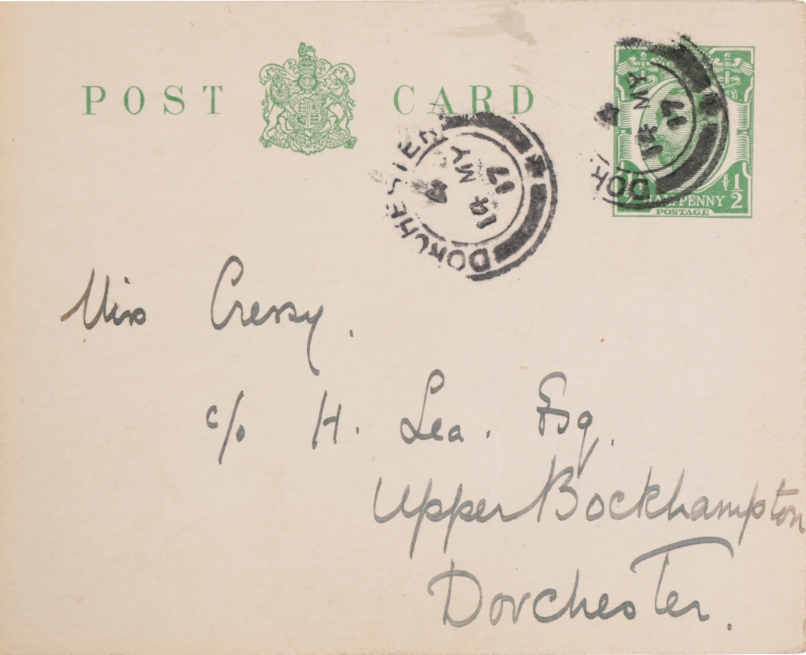 POST CARD
DORCHESTER
19 MY
17
DOR
19 MY
17
HALFPENNY 1/2
POSTAGE
Miss Cressy.
c/o H. Lea. Esq.
Upper Bockhampton
Dorchester.